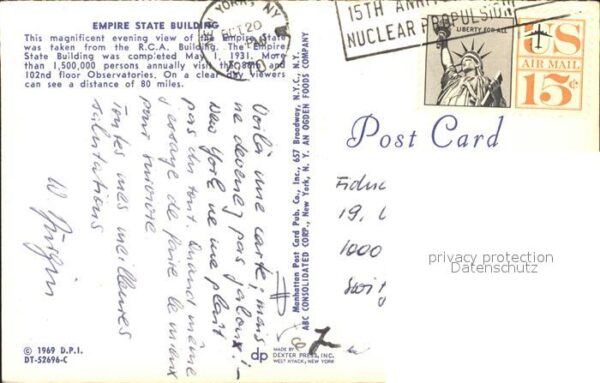 EMPIRE STATE BUILDING
This magnificent evening view of the Empire State
was taken from the R.C.A. Building. The Empire
State Building was completed May 1, 1931. More
than 1,500,000 persons annually visit the 86th and
102nd floor Observatories. On a clear day viewers
can see a distance of 80 miles.
YORK, NY
OCT 20
15TH ANNIV
NUCLEAR PROPULSION
LIBERTY FOR ALL
US
AIR MAIL
15¢
Post Card
Voilà une carte; mais
ne devenez pas jaloux! –
New York ne me plaît
pas du tout. Quand même
j'essaye de faire le mieux
pour survivre.
Toutes mes meilleures
salutations
W.
Manhattan Post Card Pub. Co., Inc., 657 Broadway N.Y.C., N.Y.
ABC CONSOLIDATED CORP., New York, N. Y. AN OGDEN FOODS COMPANY
Fiduc
19,
1000
Swit
privacy protection
Datenschutz
© 1969 D.P.I.
DT-52696-C
dp
MADE BY
DEXTER PRESS, INC.
WEST NYACK, NEW YORK